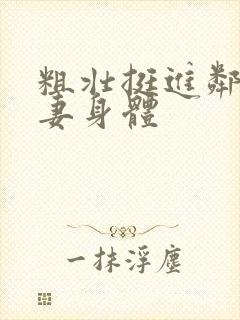 粗壮挺进鄰
妻身體
一抹浮塵